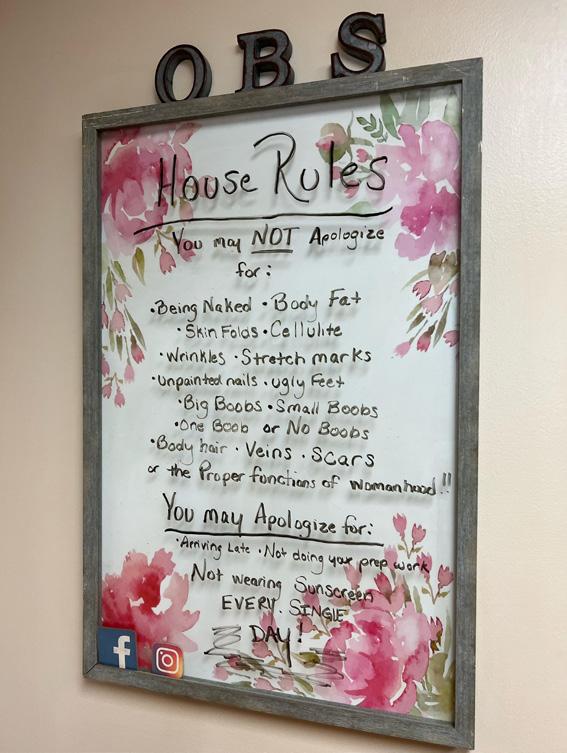 OBS
House Rules
You may NOT Apologize
for:
•Being Naked •Body Fat
•Skin Folds •Cellulite
•Wrinkles •Stretch marks
•Unpainted nails •ugly Feet
•Big Boobs •Small Boobs
•One Boob or No Boobs
•Body hair •Veins •Scars
or the Proper fonctions of womanhood!!
You may Apologize for:
•Arriving Late •Not doing your prep work
Not wearing Sunscreen
EVERY. SINGLE
DAY!